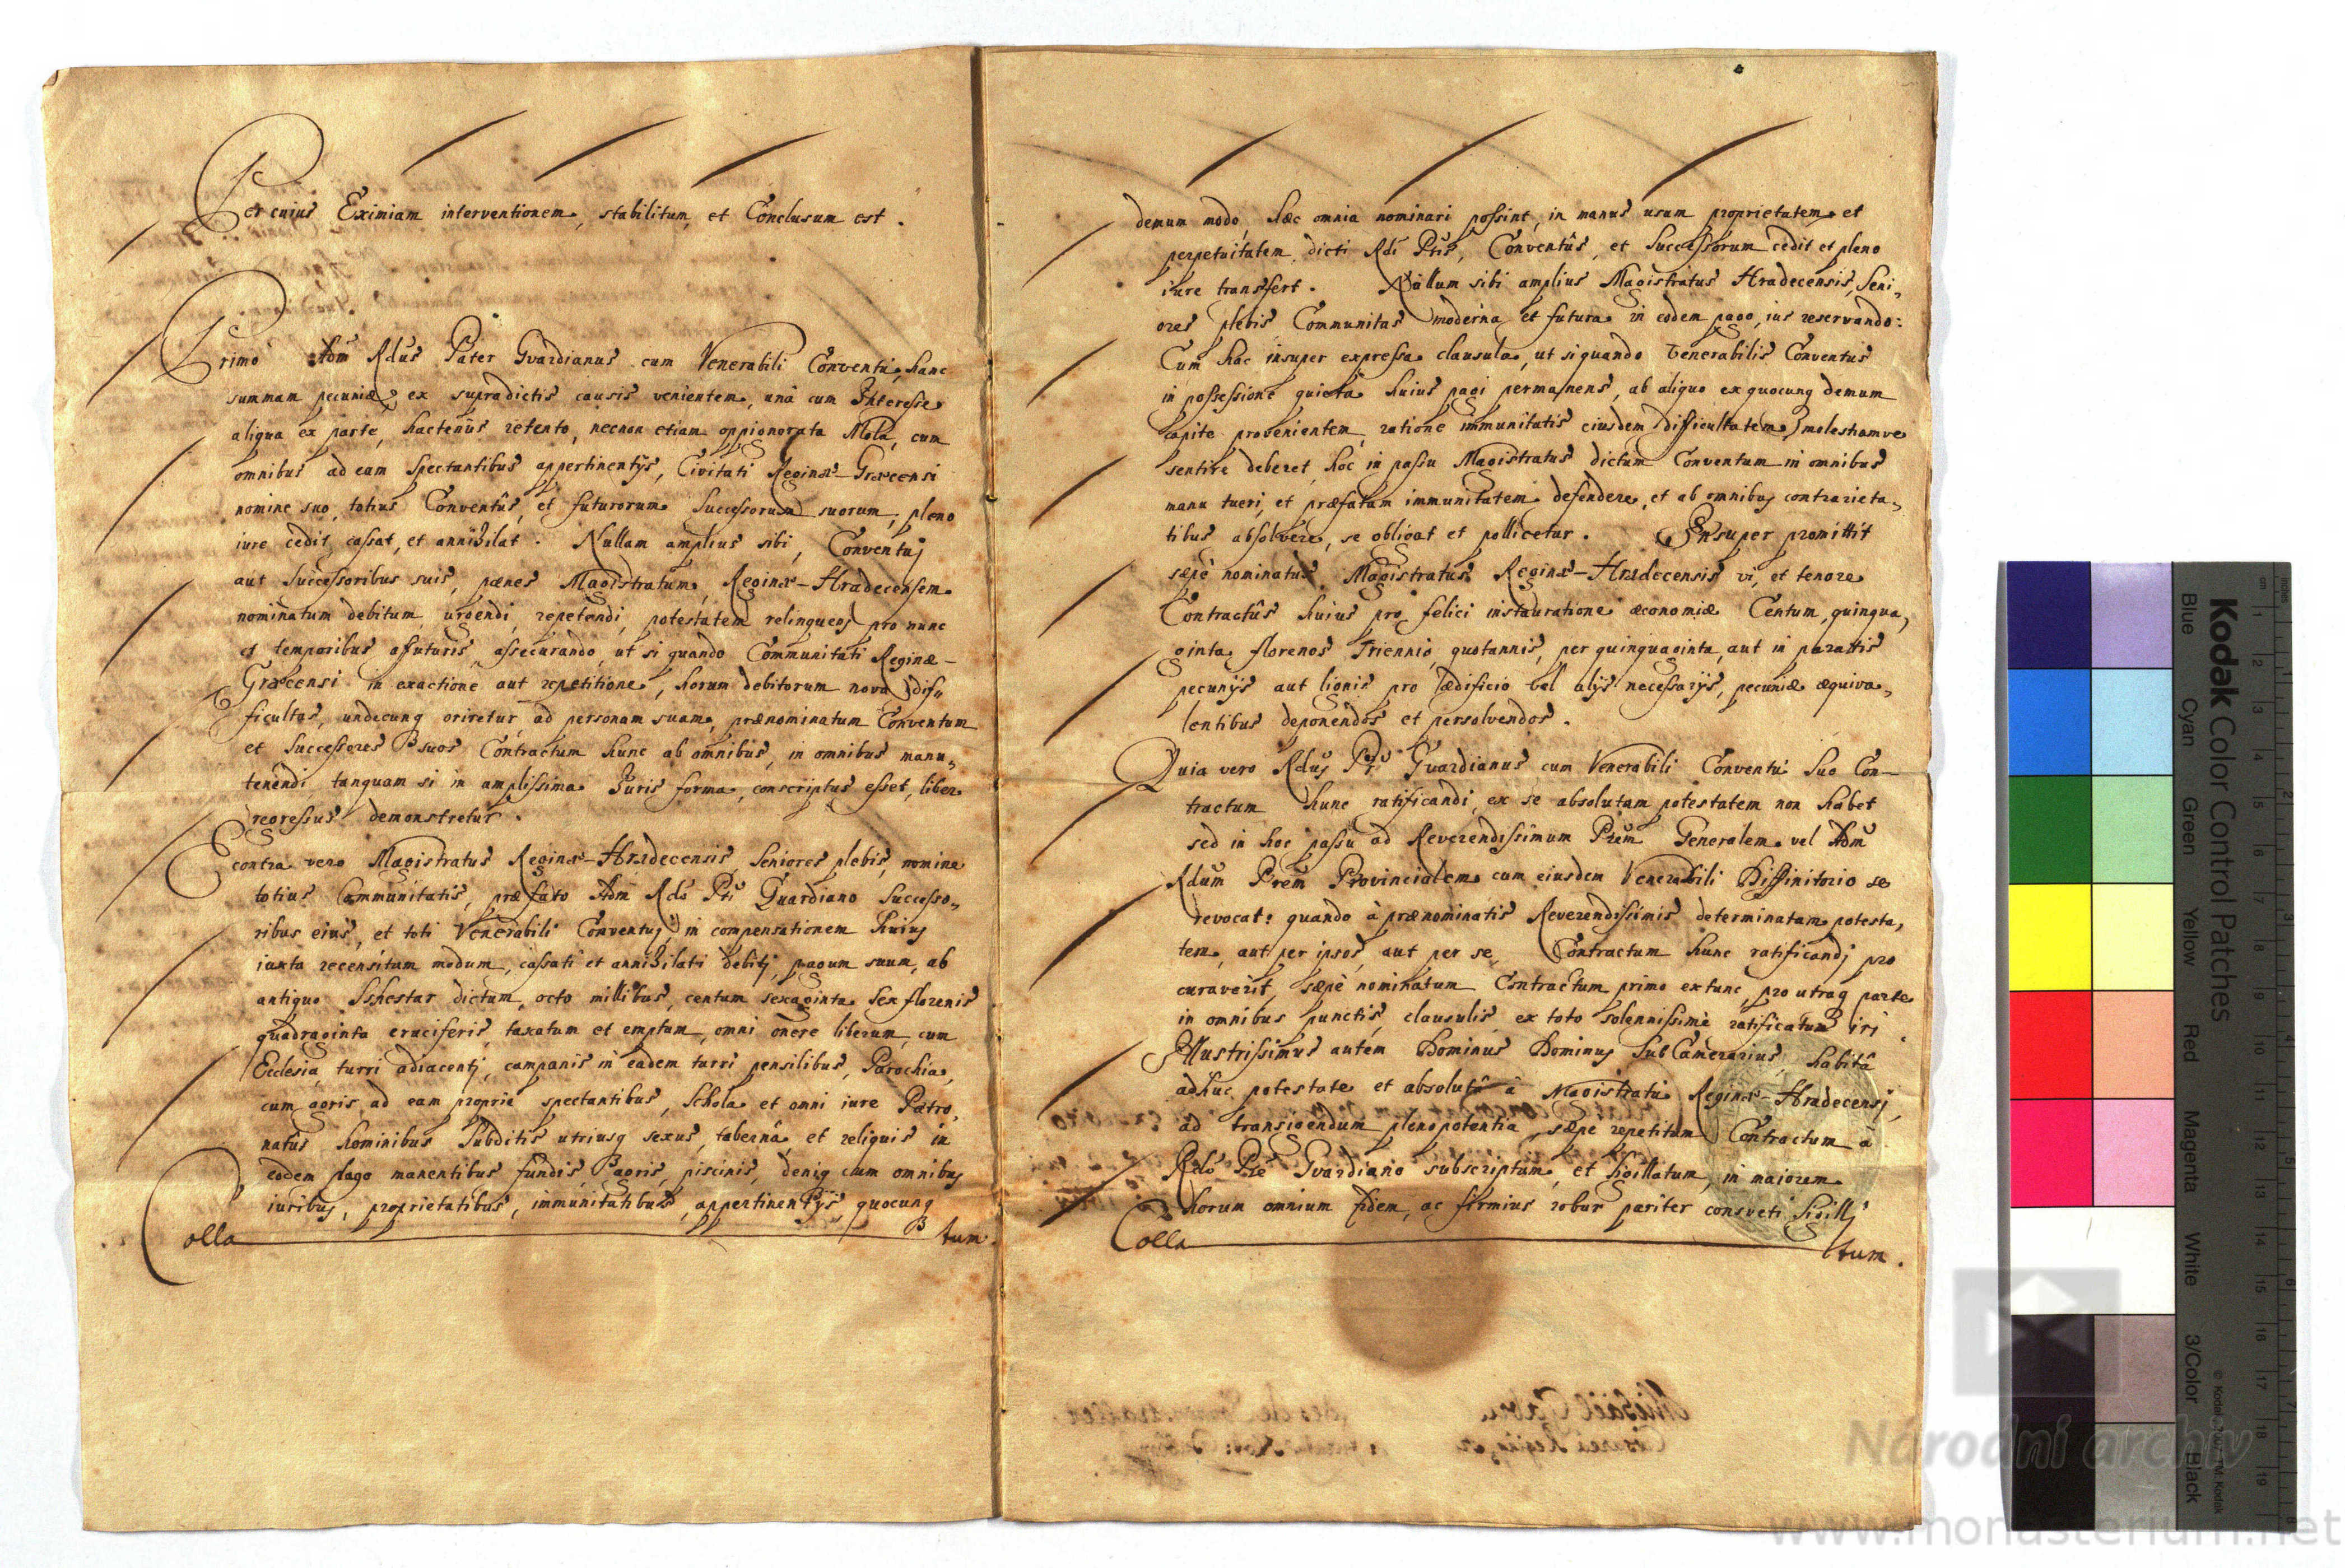 Per cuius Eximiam interventionem, stabilitum, et Conclusum est.
Primo Adm Rdus Pater Gvardianus cum Venerabili Conventu, hanc
summam pecuniæ, ex supradictis causis venientem, unà cum Interesse
aliqua ex parte, hactenus retento, necnon etiam oppignorata Mola, cum
omnibus ad eam spectantibus appertinentijs, Civitati Reginæ-Græcensi
nomine suo, totius Conventûs, et futurorum Successorum suorum, pleno
iure cedit, cassat, et annihilat. Nullam amplius sibi, Conventuj
aut Successoribus suis, pænes Magistratum, Reginæ-Hradecensem
nominatum debitum urgendi, repetendi, potestatem relinquens pro nunc
et temporibus affuturis, assecurando, ut si quando Communitati Reginæ-
Græcensi in exactione aut repetitione, horum debitorum nova diffi
ficultas, undecunq oriretur, ad personam suam, prænominatum Conventum
et Successores suos Contractum hunc ab omnibus, in omnibus manu„
tenendi, tanquam si in amplissima Iuris forma, conscriptus esset, liber
regressus demonstretur.
Econtra vero Magistratus Reginæ-Hradecensis, Seniores plebis, nomine
totius Communitatis, præfato Adm Rdo Pri Guardiano Successo„
ribus eius, et toti Venerabili Conventuj in compensationem huius
iuxta recensitum modum, cassati et annihilati debitj, pagum suum, ab
antiquo Sshestar dictum, octo millibus, centum sexaginta sex florenis
quadraginta cruciferis, taxatum et emptum, omni onere liberum, cum
Ecclesia, turri adiacentj, campanis in eadem turri pensilibus, Parochia,
cum agris ad eam proprie spectantibus, Schola et omni iure Patro„
natûs hominibus Subditis utriusq sexus, taberna, et reliquis in
eodem pago manentibus fundis, agris, piscinis, deniq cum omnibus
iuribus, proprietatibus, immunitatibus, appertinentijs, quocunq
Colla tum.
demum modo, hæc omnia nominari possint, in manus usum proprietatem et
perpetuitatem dicti Rdi Pris, Conventûs, et Successorum cedit et pleno
iure transfert. Nullum sibi amplius Magistratus Hradecensis, Seni„
ores plebis Communitas moderna et futura in eodem pago, ius reservando:
Cum hac insuper expressa clausula, ut si quando Venerabilis Conventus
in possessione quieta huius pagi permanens, ab aliquo ex quocunq demum
capite provenientem, ratione immunitatis eiusdem difficultatem, molestiamve
sentire deberet, hoc in passu Magistratus dictum Conventum in omnibus
manu tueri, et præfatam immunitatem defendere, et ab omnibus contrarieta„
tibus absolvere, se obligat et pollicetur. Insuper promittit
sæpè nominatus Magistratus Reginæ-Hradecensis vi, et tenore
Contractûs huius pro felici instauratione œconomiæ Centum, quinqua„
ginta florenos Triennio, quotannis, per quinquaginta, aut in paratis
pecunijs aut lignis pro ædificio vel alijs necessarijs, pecuniæ æquiva„
lentibus deponendos et persolvendos.
Quia vero Rdus Pr Guardianus cum Venerabili Conventu Suo Con-
tractum hunc ratificandi, ex se absolutam potestatem non habet
sed in hoc passu ad Reverendissimum Prem Generalem vel Adm
Rdum Prem Provincialem cum eiusdem Venerabili Diffinitorio se
revocat: quando à prænominatis Reverendissimis determinatam potesta„
tem, aut per ipsos, aut per se, Contractum hunc ratificandj pro
curaverit, sæpè nominatum Contractum primo ex tunc, pro utraq parte
in omnibus punctis, clausulis, ex toto solennissimè ratificatum iri
Illustrissimus autem Dominus Dominus SubCamerarius, habitâ
adhuc potestate et absolutâ à Magistratu Reginæ-Hradecensj,
ad transigendum plenopotentia, sæpè repetitum Contractum à
Rdo Pre Gvardiano subscriptum, et Sigillatum, in maiorem
horum omnium fidem, ac firmius robur pariter consveti Sigillj
Colla tum.
Kodak Color Control Patches
Blue Cyan Green Yellow Red Magenta White 3/Color Black
Národní archiv
www.monasterium.net